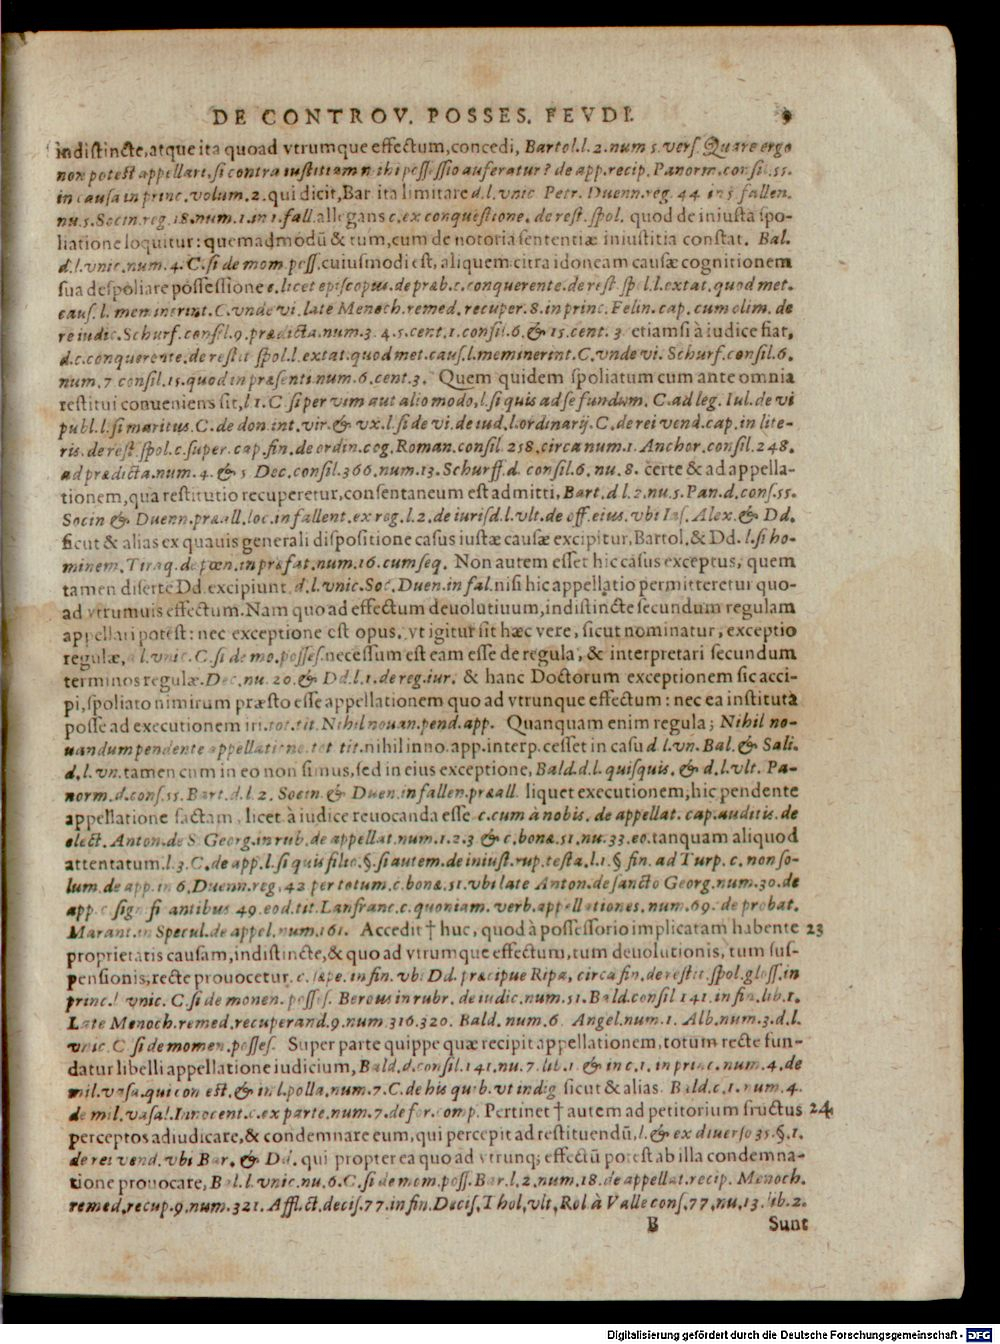 DE CONTROV. POSSES. FEVDI. 9
indistincte, atque ita quoad vtrumque effectum, concedi, Bartol. l. 2. num 5. vers. Quare ergo
non potest appellari, si contra iustitiam mihi possessio auferatur? de app. recip. Panorm. consil. 55.
in causa in princ. volum. 2. qui dicit, Bar ita limitare d. l. vnic Petr. Duenn. reg. 44 in 5 fallen.
nu. 5. Socin. reg. 18. num. 1. in 1. fall. allegans c. ex conquestione. de rest. spol. quod de iniusta spo-
liatione loquitur: quemadmodū & tum, cum de notoria sententiæ iniustitia constat. Bal.
d. l. vnic. num. 4. C. si de mom. poss. cuiusmodi est, aliquem citra idoneam causæ cognitionem
sua despoliare possessione c. licet episcopus. de præb. c. conquerente. de rest. spol. l. extat. quod met.
caus. l. meminerint. C. vnde vi. late Menoch. remed. recuper. 8. in princ. Felin. cap. cum olim. de
re iudic. Schurf. consil. 9. prædicta. num. 3. 4. 5. cent. 1. consil. 6. & 15. cent. 3. etiamsi à iudice fiat,
d. c. conquerente. de restit spol. l. extat. quod met. caus. l. meminerint. C. vnde vi. Schurf. consil. 6.
num. 7 consil. 15. quod in præsenti. num. 6. cent. 3. Quem quidem spoliatum cum ante omnia
restitui conueniens sit, l 1. C. si per vim aut alio modo, l. si quis ad se fundum. C. ad leg. Iul. de vi
publ. l. si maritus. C. de don. int. vir. & vx. l. si de vi. de iud. l. ordinarij. C. de rei vend. cap. in lite-
ris. de rest. spol. c. super. cap. fin. de ordin. cog. Roman. consil 258. circa num. 1. Anchor. consil. 248.
ad prædicta. num. 4. & 5 Dec. consil. 366. num. 13. Schurff. d. consil. 6. nu. 8. certe & ad appella-
tionem, qua restitutio recuperetur, consentaneum est admitti, Bart. d l. 2. nu. 5. Pan. d. cons. 55.
Socin & Duenn. præall. loc. in fallent. ex reg. l. 2. de iurisd. l. vlt. de off. eius. vbi Ias. Alex. & Dd.
sicut & alias ex quauis generali dispositione casus iustæ causæ excipitur, Bartol. & Dd. l. si ho-
minem. Tiraq. de pœn. in præfat. num. 16. cum seq. Non autem esset hic casus exceptus, quem
tamen diserte Dd excipiunt d. l. vnic. Soc. Duen. in fal. nisi hic appellatio permitteretur quo-
ad vtrumuis effectum. Nam quo ad effectum deuolutiuum, indistincte secundum regulam
appellari potest: nec exceptione est opus. vt igitur sit hæc vere, sicut nominatur, exceptio
regulæ, l. vnic. C. si de mo. posses. necessum est eam esse de regula, & interpretari secundum
terminos regulæ. Dec. nu. 20. & Dd. l. 1. de reg. iur. & hanc Doctorum exceptionem sic acci-
pi, spoliato nimirum præsto esse appellationem quo ad vtrunque effectum: nec ea instituta
posse ad executionem iri. tot. tit. Nihil nouan. pend. app. Quanquam enim regula; Nihil no-
uandum pendente appellatione. tot tit. nihil inno. app. interp. cesset in casu d l. vn. Bal. & Sali.
d. l. vn. tamen cum in eo non simus, sed in eius exceptione, Bald. d. l. quisquis. & d. l. vlt. Pa-
norm. d. cons. 55. Bart. d. l. 2. Socin. & Duen. in fallen. præall. liquet executionem, hic pendente
appellatione factam, licet à iudice reuocanda esse c. cum à nobis. de appellat. cap. auditis. de
elect. Anton. de S. Georg. in rub. de appellat. num. 1. 2. 3 & c. bonæ. 51. nu. 33. eo. tanquam aliquod
attentatum. l. 3. C. de app. l. si quis filio. §. si autem. de iniust. rup. testa. l. 1. § fin. ad Turp. c. non so-
lum. de app. in 6. Duenn. reg. 42 per totum. c. bonæ. 51. vbi late Anton. de sancto Georg. num. 30. de
app. c. significantibus 49. eod. tit. Lanfranc. c. quoniam. verb. appellationes. num. 69. de probat.
Marant. in Specul. de appel. num. 161. Accedit † huc, quod à possessorio implicatam habente 23
proprietatis causam, indistincte, & quo ad vtrumque effectum, tum deuolutionis, tum sus-
pensionis, recte prouocetur. c. sæpe. in fin. vbi Dd. præcipue Ripa, circa fin. de restit. spol. gloss. in
princ. l. vnic. C. si de momen. posses. Berous in rubr. de iudic. num. 51. Bald. consil 141. in fin. lib. 1.
Late Menoch. remed. recuperand. 9. num. 316. 320. Bald. num. 6 Angel. num. 1. Alb. num. 3. d. l.
vnic. C si de momen. posses. Super parte quippe quæ recipit appellationem, totum recte fun-
datur libelli appellatione iudicium, Bald. d. consil. 141. nu. 7. lib. 1. & in c. 1. in princ. num. 4. de
mil. vasa. qui con est. & in l. polla. num. 7. C. de his quib. vt indig sicut & alias. Bald. c. 1. num. 4.
de mil. vasal. Innocent. c. ex parte. num. 7. de for. comp. Pertinet † autem ad petitorium fructus 24
perceptos adiudicare, & condemnare eum, qui percepit ad restituendū, l. & ex diuerso 35. §. 1.
de rei vend. vbi Bar. & Dd. qui propterea quo ad vtrunq; effectū potest ab illa condemna-
tione prouocare, Bal. l. vnic. nu. 6. C. si de mom. poss. Bar. l. 2. num. 18. de appellat. recip. Menoch.
remed. recup. 9. num. 321. Afflict. decis. 77. in fin. Decis. Thol. vlt, Rol. à Valle cons. 77. nu. 13. lib. 2.
B Sunt
Digitalisierung gefördert durch die Deutsche Forschungsgemeinschaft - DFG